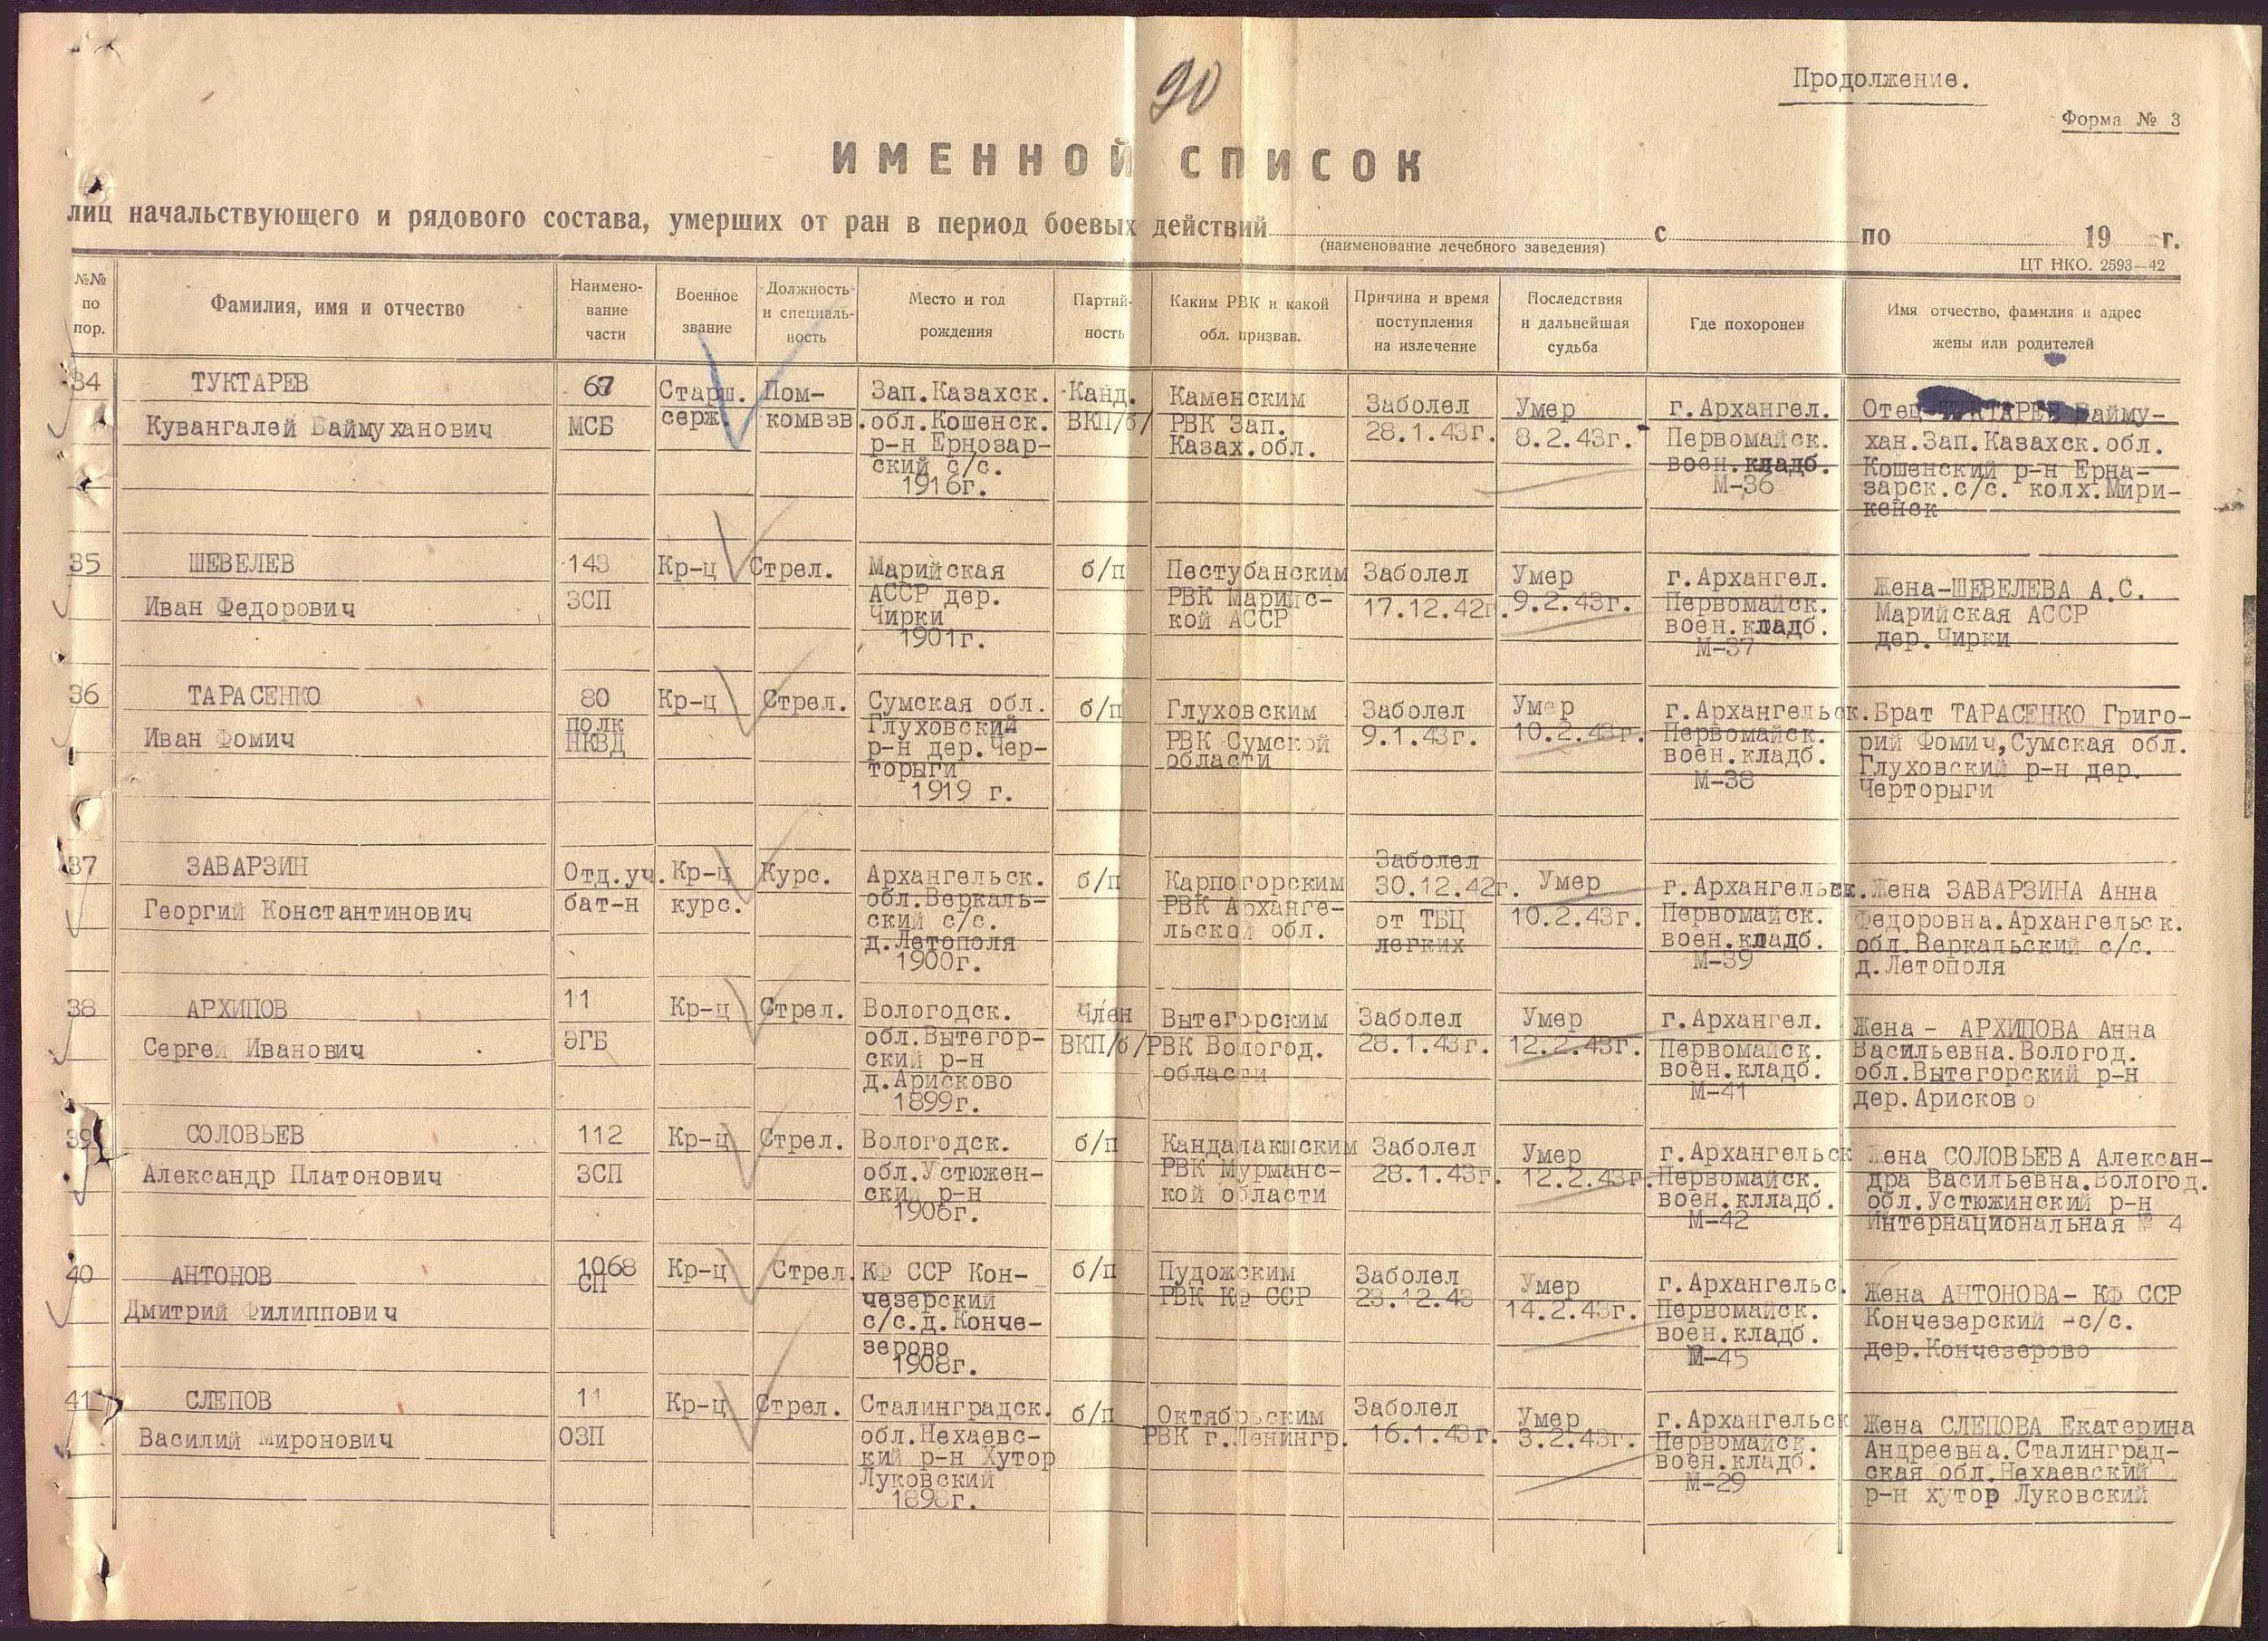 90
Продолжение.
Форма № 3
ИМЕННОЙ СПИСОК
лиц начальствующего и рядового состава, умерших от ран в период боевых действий с по 19 г.
(наименование лечебного заведения)
ЦТ НКО. 2593—42
№№ по пор.
Фамилия, имя и отчество
Наимено-
вание
части
Военное
звание
Должность
и специаль-
ность
Место и год
рождения
Партий-
ность
Каким РВК и какой
обл. призван.
Причина и время
поступления
на излечение
Последствия
и дальнейшая
судьба
Где похоронен
Имя отчество, фамилия и адрес
жены или родителей
34
ТУКТАРЕВ
Кувангалей Баймуханович
67
МСБ
Старш.
серж.
Пом-
комвзв.
Зап.Казахск.
обл.Кошенск.
р-н Ернозар-
ский с/с.
1916г.
Канд.
ВКП/б/
Каменским
РВК Зап.
Казах.обл.
Заболел
28.1.43г.
Умер
8.2.43г.
г.Архангел.
Первомайск.
воен.кладб.
М-36
Отец ТУКТАРЕВ Байму-
хан.Зап.Казахск.обл.
Кошенский р-н Ерна-
зарск.с/с. колх.Мири-
кенек
35
ШЕВЕЛЕВ
Иван Федорович
143
ЗСП
Кр-ц
Стрел.
Марийская
АССР дер.
Чирки
1901г.
б/п
Пестубанским
РВК Марийс-
кой АССР
Заболел
17.12.42г.
Умер
9.2.43г.
г.Архангел.
Первомайск.
воен.кладб.
М-37
Жена-ШЕВЕЛЕВА А.С.
Марийская АССР
дер.Чирки
36
ТАРАСЕНКО
Иван Фомич
80
полк
НКВД
Кр-ц
Стрел.
Сумская обл.
Глуховский
р-н дер.Чер-
торыги
1919 г.
б/п
Глуховским
РВК Сумской
области
Заболел
9.1.43г.
Умер
10.2.43г.
г.Архангельск.
Первомайск.
воен.кладб.
М-38
Брат ТАРАСЕНКО Григо-
рий Фомич,Сумская обл.
Глуховский р-н дер.
Черторыги
37
ЗАВАРЗИН
Георгий Константинович
Отд.уч.
бат-н
Кр-ц
курс.
Курс.
Архангельск.
обл.Веркаль-
ский с/с.
д.Летополя
1900г.
б/п
Карпогорским
РВК Арханге-
льской обл.
Заболел
30.12.42г.
от ТБЦ
легких
Умер
10.2.43г.
г.Архангельск.
Первомайск.
воен.кладб.
М-39
Жена ЗАВАРЗИНА Анна
Федоровна.Архангельск.
обл.Веркальский с/с.
д.Летополя
38
АРХИПОВ
Сергей Иванович
11
ЭГБ
Кр-ц
Стрел.
Вологодск.
обл.Вытегор-
ский р-н
д.Арисково
1899г.
Член
ВКП/б/
Вытегорским
РВК Вологод.
области
Заболел
28.1.43г.
Умер
12.2.43г.
г.Архангел.
Первомайск.
воен.кладб.
М-41
Жена - АРХИПОВА Анна
Васильевна.Вологод.
обл.Вытегорский р-н
дер.Арисково
39
СОЛОВЬЕВ
Александр Платонович
112
ЗСП
Кр-ц
Стрел.
Вологодск.
обл.Устюжен-
ский р-н
1906г.
б/п
Кандалакшским
РВК Мурманс-
кой области
Заболел
28.1.43г.
Умер
12.2.43г.
г.Архангельск
Первомайск.
воен.клладб.
М-42
Жена СОЛОВЬЕВА Алексан-
дра Васильевна.Вологод.
обл.Устюжинский р-н
Интернациональная № 4
40
АНТОНОВ
Дмитрий Филиппович
1068
СП
Кр-ц
Стрел.
КФ ССР Кон-
чезерский
с/с.д.Конче-
зерово
1908г.
б/п
Пудожским
РВК КФ ССР
Заболел
23.12.43
Умер
14.2.43г.
г.Архангельс.
Первомайск.
воен.кладб.
М-45
Жена АНТОНОВА- КФ ССР
Кончезерский -с/с.
дер.Кончезерово
41
СЛЕПОВ
Василий Миронович
11
ОЗП
Кр-ц
Стрел.
Сталинградск.
обл.Нехаевс-
кий р-н Хутор
Луковский
1898г.
б/п
Октябрьским
РВК г.Ленингр.
Заболел
16.1.43г.
Умер
3.2.43г.
г.Архангельск
Первомайск.
воен.кладб.
М-29
Жена СЛЕПОВА Екатерина
Андреевна.Сталинград-
ская обл.Нехаевский
р-н хутор Луковский